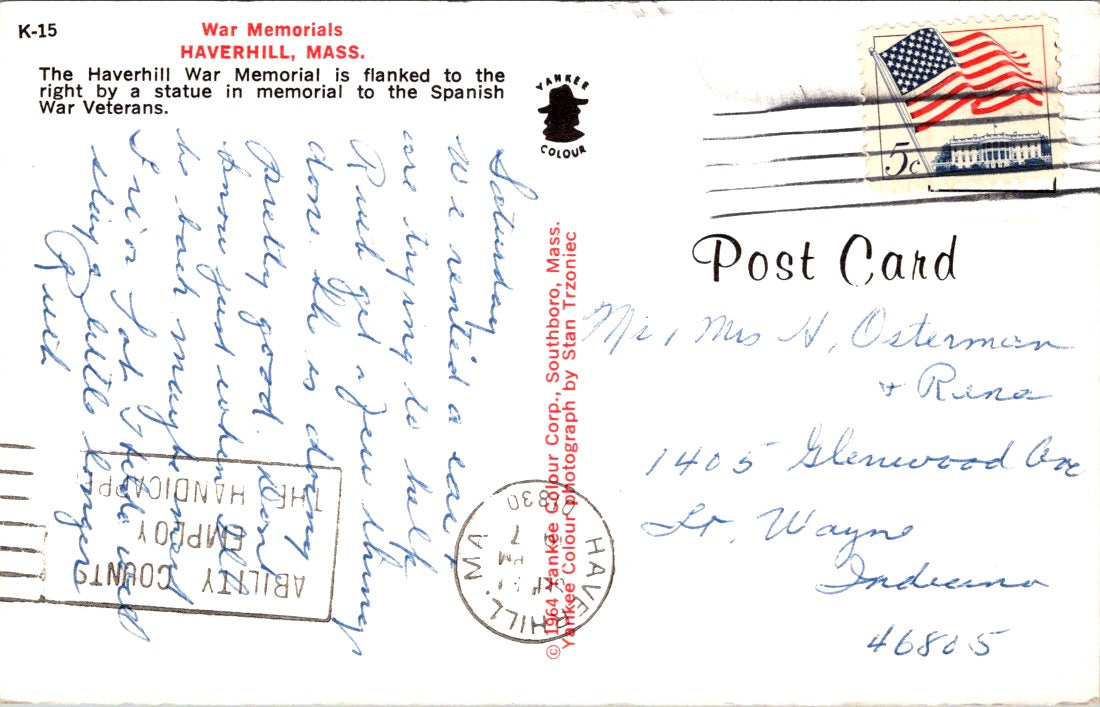 K-15
War Memorials
HAVERHILL, MASS.
The Haverhill War Memorial is flanked to the
right by a statue in memorial to the Spanish
War Veterans.
YANKEE
COLOUR
5c
Post Card
Saturday
We rented a car,
are trying to help
Ruth get a few things
done. She is doing
pretty good. Don't
know just when I'll
be back maybe Wed
Fri or Sat. I hide will
stay a little longer
Mr, Mrs H, Osterman
+ Rena
1405 Glenwood Ave
Ft. Wayne
Indiana
46805
© 1964 Yankee Colour Corp., Southboro, Mass.
Yankee Colour photograph by Stan Trzoniec
HAVERHILL, MA
PM
01830
ABILITY COUNTS
EMPLOY
THE HANDICAPPE